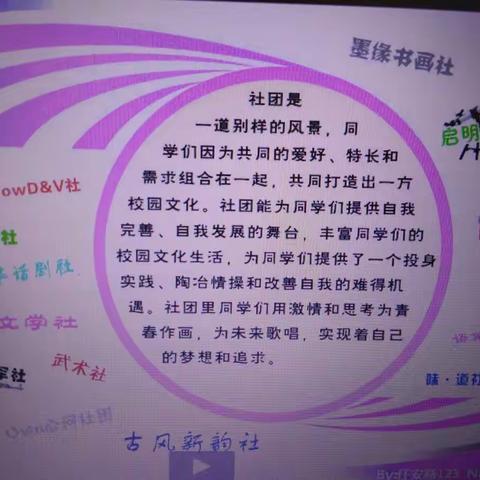 墨缘书画社
启明
社团是
一道别样的风景，同
学们因为共同的爱好、特长和
需求组合在一起，共同打造出一方
校园文化。社团能为同学们提供自我
完善、自我发展的舞台，丰富同学们的
校园文化生活，为同学们提供了一个投身
实践、陶冶情操和改善自我的难得机
遇。社团里同学们用激情和思考为青
春作画，为未来歌唱，实现着自己
的梦想和追求。
owD&V社
社
话剧社
文学社
武术社
军社
味·道社
古风新韵社